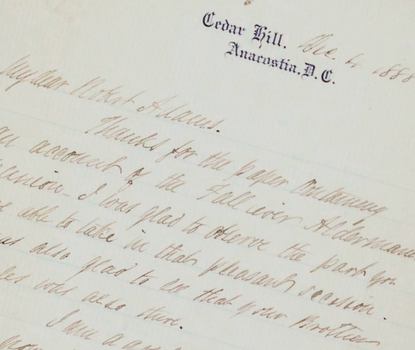 Cedar Hill.
Anacostia, D.C.
Dec. 6, 188
My dear Robert Adams.
Thanks for the paper containing
an account of the Fall River Alderman
I was glad to observe the part you
able to take in that pleasant
also glad to see that your Brother
was also there.
I am